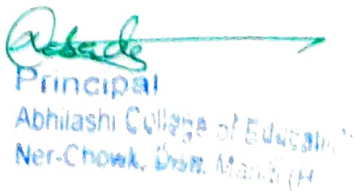 Principal
Abhilashi College of Education
Ner-Chowk, Distt. Mandi (H